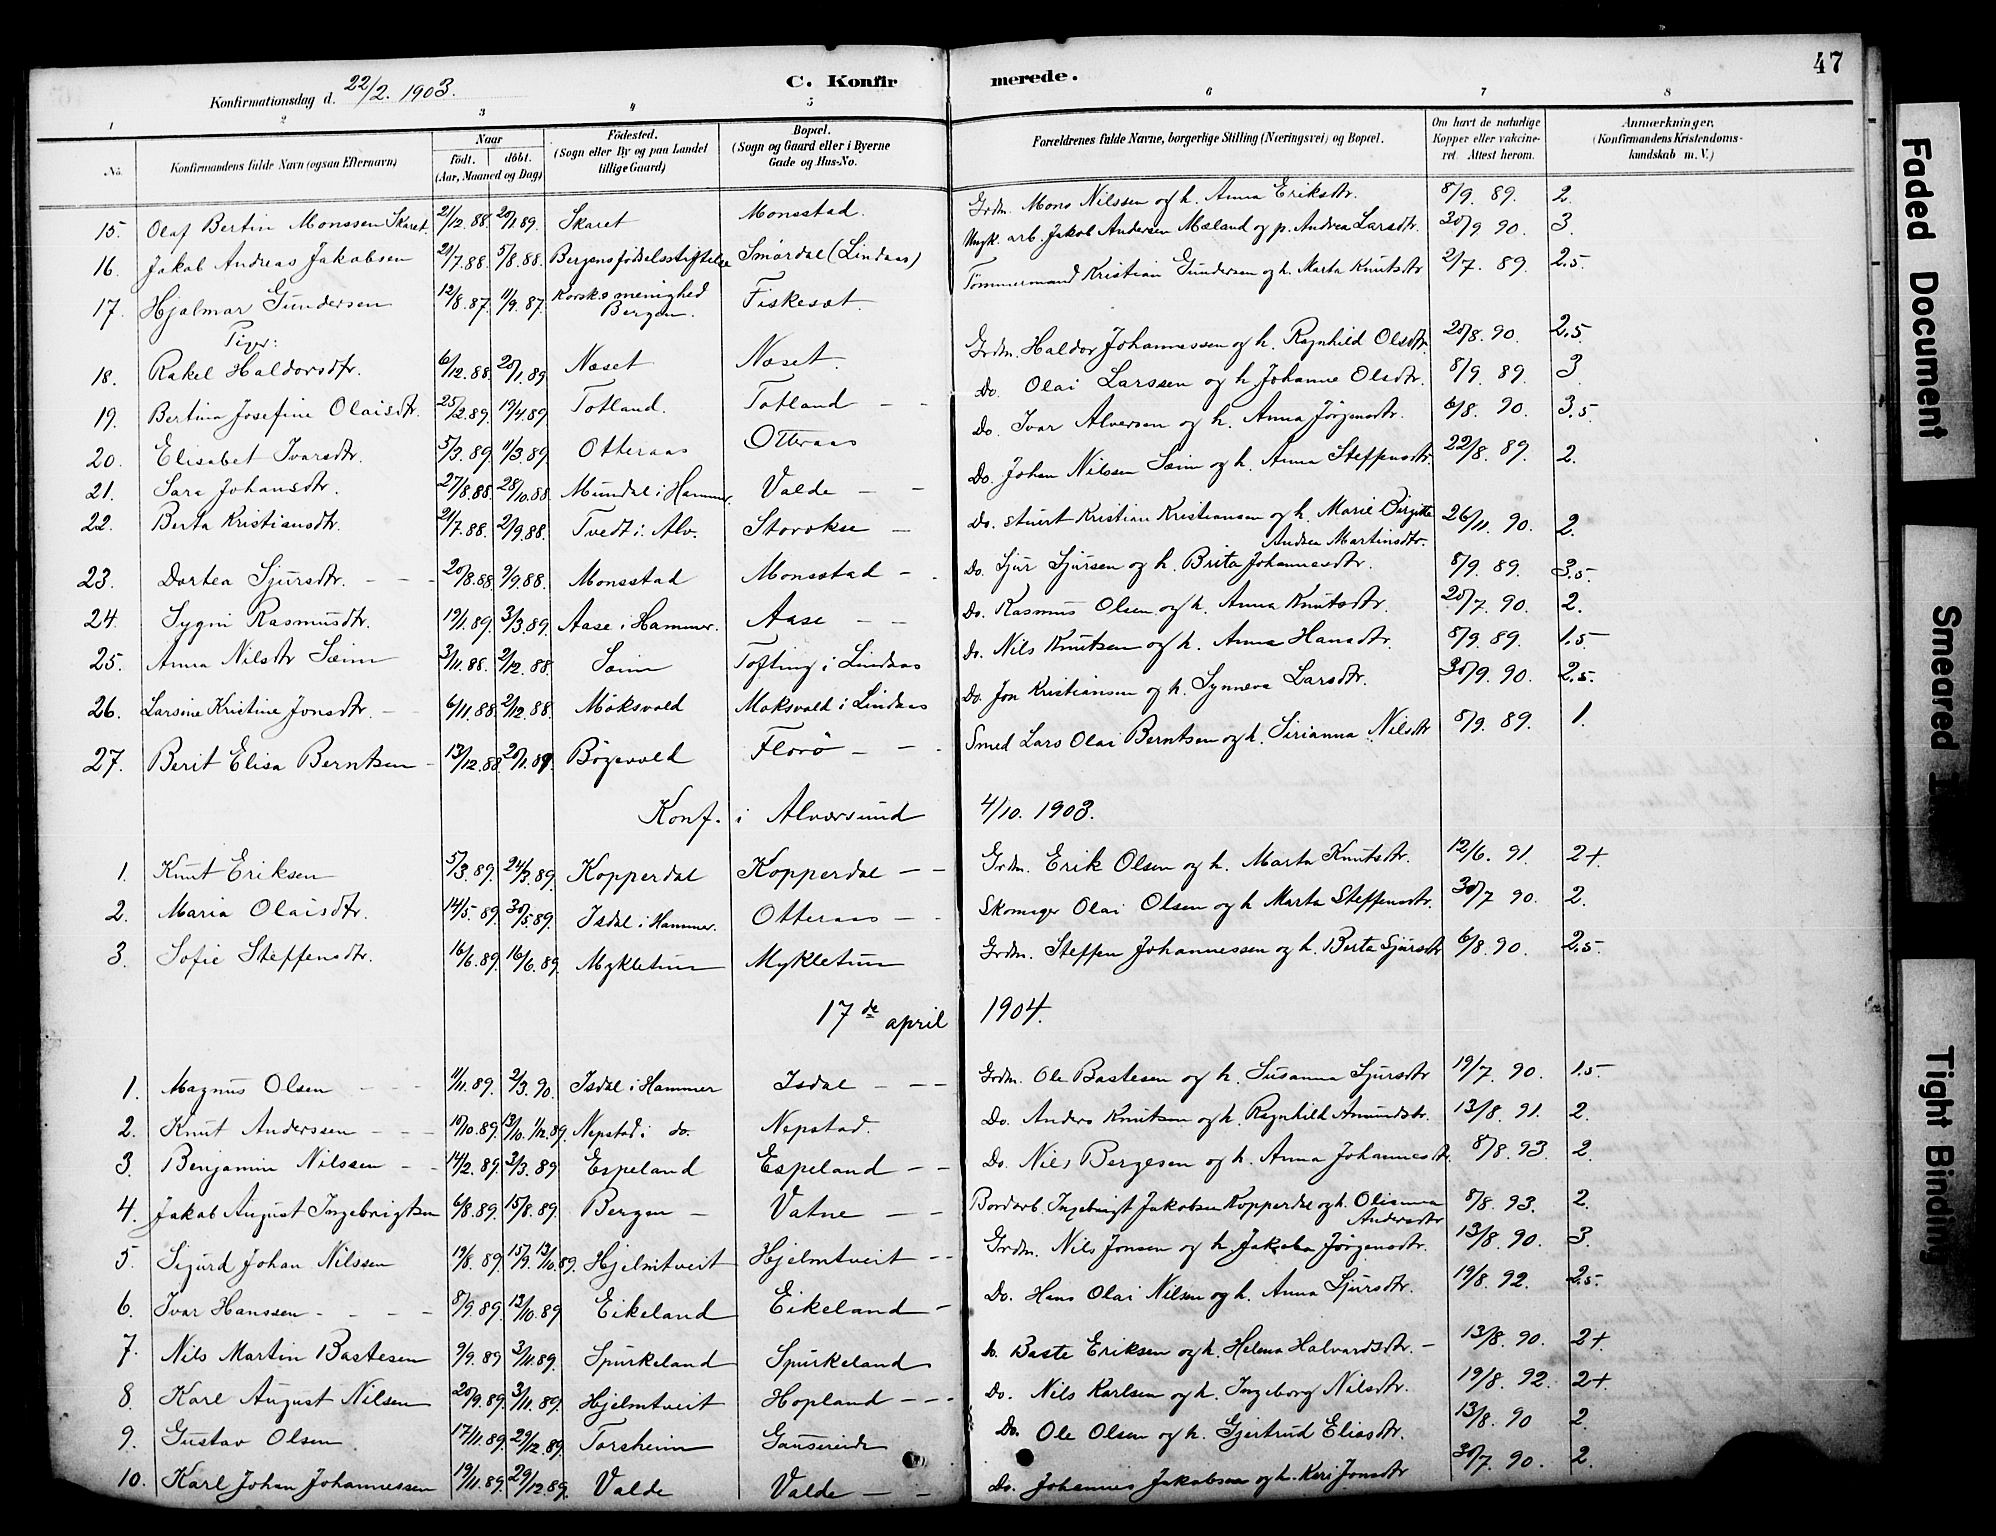 47
C. Konfirmerede.
Konfirmationsdag d. 22/2. 1903.
1 2 3 4 5 6 7 8
No. Konfirmandens fulde Navn (ogsaa Efternavn) Naar födt. döbt. (Aar, Maaned og Dag) Födested. (Sogn eller By og paa Landet tillige Gaard) Bopæl. (Sogn og Gaard eller i Byerne Gade og Hus-No. Forældrenes fulde Navne, borgerlige Stilling (Næringsvei) og Bopæl. Om havt de naturlige Kopper eller vakcineret. Attest herom. Anmærkninger. (Konfirmandens Kristendomskundskab m. V.)
15. Olaf Bertin Monssen Skaret. 21/12.88. 20/1.89. Skaret Monsstad. Grdm. Mons Nilssen og h. Anna Eriksdtr. 8/9. 89. 2.
16. Jakob Andreas Jakobsen 21/7.88. 5/8.88. Bergens födselsstiftelse Smørdal (Lindaas) Ungk. arb. Jakob Andersen Mæland og p. Andrea Larsdtr. 30/9 90. 3.
17. Hjalmar Gundersen 12/8.87. 11/9.87. Korsk. menighed Bergen. Fiskeset. Tömmermand Kristian Gundersen og h. Marta Knutsdtr 2/7. 89. 2.5
Piger:
18. Rakel Haldorsdtr. 6/12.88. 20/1.89 Næset Næset. Grdm. Haldor Johannessen og h. Ragnhild Olsdtr. 20/8. 90. 2.5
19. Bertina Josefine Olaisdtr. 25/2.89. 19/4.89 Totland. Totland – – Do. Olai Larssen og h. Johanne Olsdtr. 8/9. 89. 3
20. Elisabet Ivarsdtr. 5/3.89. 11/3.89. Otteraas Otteraas Do. Ivar Alversen og h. Anna Jørgensdtr. 6/8. 90. 3.5
21. Sara Johansdtr. 27/8.88. 28/10.88. Mundal i Hammer. Valde – – Do. Johan Nilssen Sæim og h. Anna Steffensdtr. 22/8. 89. 2.
22. Berta Kristiansdtr. 21/7.88. 2/9.88. Tvedt i Alv. Storokse – Do. Kristian Kristiansen og h. Marie Birgitte Andrea Martinsdtr. 26/11. 90. 2.
23. Dortea Sjursdtr. – – – 20/8.88. 9/9.88. Monsstad Monsstad – Do. Sjur Sjursen og h. Brita Johannesdtr. 8/9. 89. 3.5.
24. Sygni Rasmusdtr. 19/1.89. 3/3.89. Aase i Hammer. Aase – – Do. Rasmus Olsen og h. Anna Knutsdtr. 20/7. 90. 2.
25. Anna Nilsdtr Sæim 3/11.88. 2/12.88. Sæim Tofting i Lindaas Do. Nils Knutsen og h. Anna Hansdtr. 8/9. 89. 1.5
26. Larsine Kristine Jonsdtr. – 6/11.88. 2/12.88. Moksvold Moksvold i Lindaas Do. Jon Kristiansen og h. Synneva Larsdtr. 30/9. 90. 2.5.
27. Berit Elisa Berntsen – 13/12.88. 20/1.89 Bögevold Florö – – Smed Lars Olai Berntsen og h. Sirianna Nilsdtr 8/9. 89. 1.
Konf. i Alversund 4/10. 1903.
1. Knut Eriksen 5/3.89. 24/3.89. Kopperdal Kopperdal – – Grdm. Erik Olsen og h. Marta Knutsdtr. 12/6. 91. 2+.
2. Maria Olaisdtr. 14/5.89. 30/5.89. Isdal i Hammer. Otteraas – – Skomager Olai Olsen og h. Marta Steffensdtr. 30/7 90. 2.
3. Sofie Steffensdtr. 16/6.89. 16/6.89. Mykletun Mykletun Grdm. Steffen Johannessen og h. Berta Sjursdtr 6/8. 90. 2.5.
17de april 1904.
1. Magnus Olsen – – 11/11.89. 2/3.90. Isdal i Hammer Isdal – – – Grdm. Ole Bastesen og h. Susanna Sjursdtr 19/7. 90. 1.5
2. Knut Anderssen – – – 10/10.89. 13/10. 1/12.89. Nepstad i do. Nepstad. Do. Anders Knutsen og h. Ragnhild Amundsdtr. 13/8. 91. 2.
3. Benjamin Nilssen – – 14/2.89. 3/3.89 Espeland Espeland – – Do. Nils Bergesen og h. Anna Johannesdtr. 8/8. 93. 2.
4. Jakob August Ingebrigtsen 6/8.89. 15/8.89. Bergen – Vatne – – Bordarb. Ingebrigt Jakobsen Kopperdal og h. Olianna Andersdtr 8/8. 93. 2.
5. Sigurd Johan Nilssen 19/8.89. 15/9. 13/10.89. Hjelmtveit Hjelmtveit – – Grdm. Nils Jonsen og h. Jakoba Jørgensdtr. 13/8. 90. 3.
6. Ivar Hanssen – – – 8/9.89. 13/10.89 Eikeland Eikeland – Do. Hans Olai Nilsen og h. Anna Sjursdtr. 19/8. 92. 2.5.
7. Nils Martin Bastesen 9/9.89 3/11.89. Spurkeland Spurkeland Do. Baste Eriksen og h. Helena Halvardsdtr. – 13/8. 90. 2+
8. Karl August Nilsen 20/9.89. 3/11.89. Hjelmtveit Hopland – – – Do. Nils Karlsen og h. Ingeborg Nilsdtr. 19/8. 92. 2+.
9. Gustav Olsen 17/11.89. 29/12.89. Torsheim Do. Ole Olsen og h. Gjertrud Eliasdtr. 13/8. 90 2.
10. Karl Johan Johannessen 19/11.89. 29/12.89. Valde Valde – – Do. Johannes Jakobsen og h. Kari Jonsdtr 30/7. 90. 2.
Faded Document
Smeared
Tight Binding